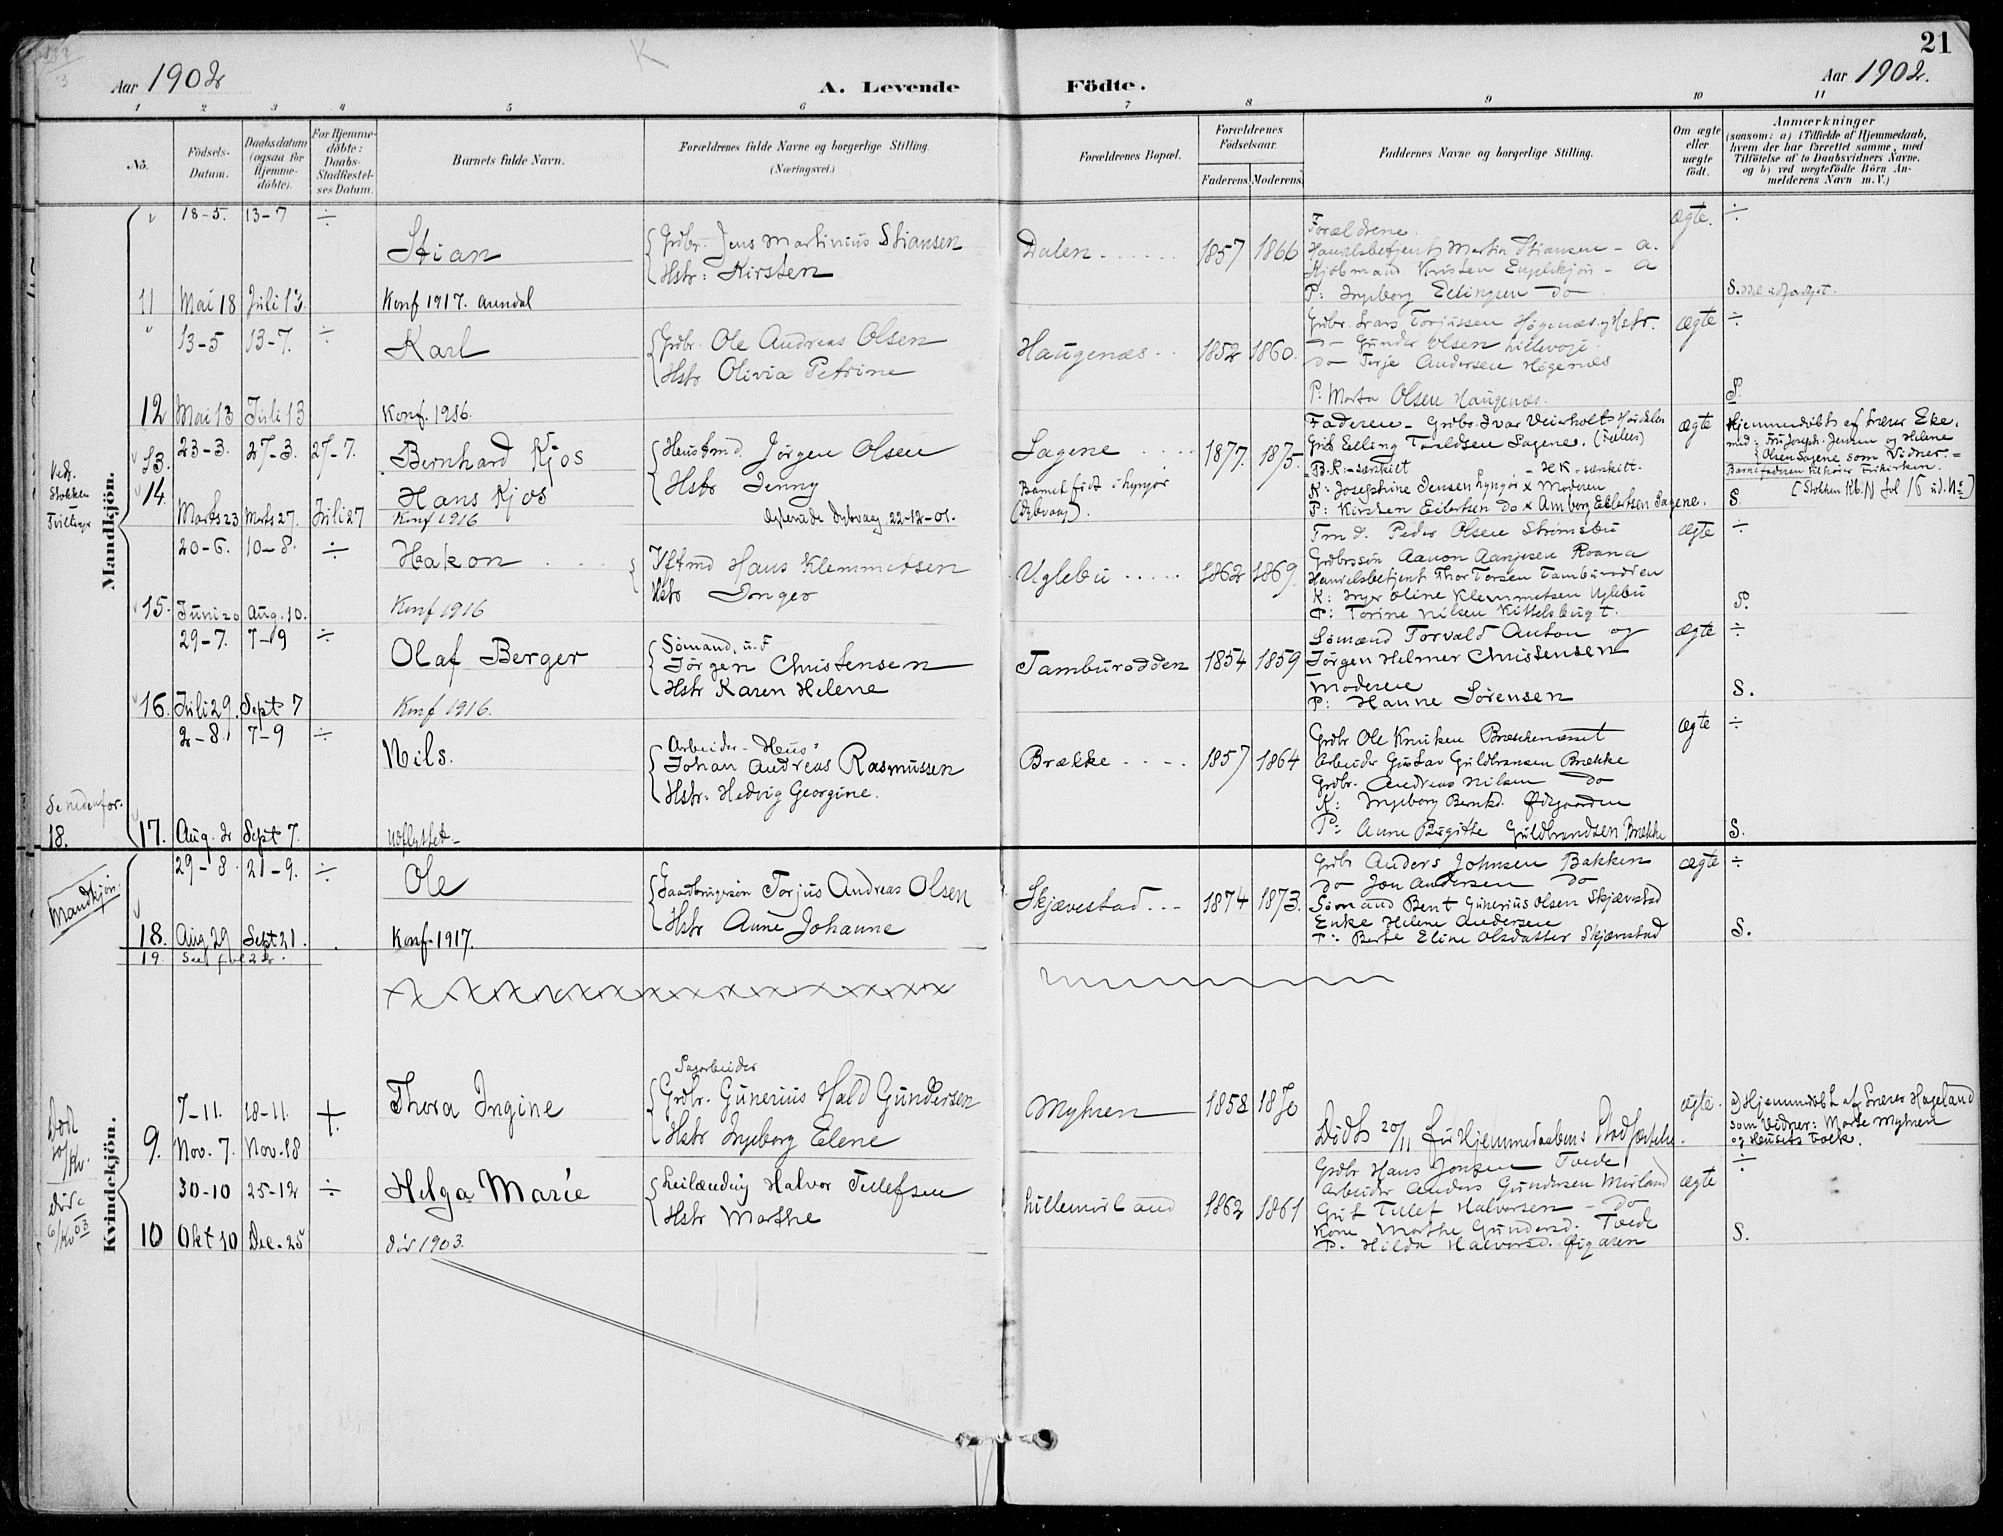 21
Aar 1902
A. Levende Födte.
Aar 1902.
1 2 3 4 5 6 7 8 9 10 11
No.
Födsels-Datum.
Daabsdatum (ogsaa for Hjemme-döbte).
For Hjemme-döbte: Daabs-Stadfæstel-ses Datum.
Barnets fulde Navn.
Forældrenes fulde Navne og borgerlige Stilling.
(Næringsvei.)
Forældrenes Bopæl.
Forældrenes Födselsaar.
Faderens. Moderens.
Faddernes Navne og borgerlige Stilling.
Om ægte eller uægte födt.
Anmærkninger
(saasom: a) i Tilfælde af Hjemmedaab,
hvem der har forrettet samme, med
Tilföielse af to Daabsvidners Navne.
og b) ved uægtefödte Börn An-
melderens Navn m. V.)
Mandkjön.
18-5. 13-7 ÷
Stian
Grdbr. Jens Martinius Stiansen
Hstr: Kirsten
Dalen 1857 1866
Forældrene.
Handelsbetjent Martin Stiansen - a.
P: Ingeborg Ellingsen do
ægte. ÷
11 Mai 18 Juli 13.
Konf 1917. Arendal
13-5 13-7. ÷
Karl
Grdbr. Ole Andreas Olsen
Hstr Olivia Petrine
Haugenæs 1852 1860.
Grdbr. Lars Torjussen Høgenæs og Hstr.
do Gunder Olsen
do Terje Andersen Høgenæs
P. Marta Olsen Haugenæs.
ægte ÷
S.
12 Mai 13 Juli 13
Konf. 1916.
Tvillinger
23-3. 27-3. 27-7.
13. Bernhard Kjos
14. Hans Kjos
Marts 23 Marts 27. Juli 27
Konf 1916
Husmd. Jørgen Olsen
Hstr Jenny
Dybvaag 22-12-01.
Sagene
Barnet født i Lyngør
(Dybvaag).
1877. 1875.
Faderen - Grdbr. Ivar
K: Josephine Jensen Lyngør x Moderen
P: Kirsten Eilertsen do x Amborg Eilertsen Sagene.
ægte
Hjemmedøbt af Lærer Eke.
Olsen Sagene som Vidner.
S
20-6. 10-8. ÷
Hakon
Hans Klemmetsen
Hstr Inger
Uglebu 1862 1869.
Tmd. Peder Olsen Strømsbu
Grdbrsøn Aanon Aanjesen Roana
Handelsbetjent Thor Torsen Tamburodden
K: Inger Oline Klemmetsen Uglebu
P: Torine Nilsen Kittelsbugt.
ægte ÷
S.
15. Juni 20 Aug. 10.
Konf 1916
29-7. 7-9 ÷
Olaf Berger
Sømand, u.F
Jørgen Christensen
Hstr Karen Helene
Tamburodden 1854 1859
Sømænd Torvald Anton og
Jørgen Helmer Christensen
Moderen
P: Hanne Sørensen
ægte ÷
S.
16. Juli 29. Sept 7
Konf 1916.
2-8. 7-9 ÷
Nils.
Arbeider - Hus
Johan Andreas Rasmussen
Hstr: Hedvig Georgine.
Brække 1857 1864
Grdbr Ole Knutsen
Arbeider Gustav Guldbransen Brække
Grdbr. Andreas Nilsen do
K: Ingeborg Bernhd. Ødegaarden
P: Anne Birgitte Guldbrandsen Brække
ægte ÷
S.
Se nedenfor.
18.
17. Aug. 2 Sept 7.
Udflyttet
Mandkjøn.
29-8. 21-9. ÷
Ole
Gaardbrugersøn Torjus Andreas Olsen
Hstr Anne Johanne
Skjævestad 1874 1873.
Grdbr Anders Johnsen Bakken
do Jon Andersen do
Sømand Bent Gunerius Olsen Skjævestad
Enke Helene Andersen
P: Berte Eline Olsdatter Skjævestad
ægte ÷
S.
18. Aug 29 Sept 21.
Konf. 1917.
19.
Kvindekjön.
7-11. 18-11. +
Thora Ingine
Sagarbeider
Grdbr. Gunerius Hald Gundersen
Hstr Ingeborg Elene
Myhren 1858 1870
Døde 20/11 før Hjemmedaabens Stadfæstelse.
ægte.
a) Hjemmedøbt af Lærer Hageland
som Vidner: Marte Myhren
og Husets Folk.
9. Nov. 7. Nov. 18
30-10 25-12 ÷
Helga Marie
Leilænding Halvor Tellefsen
Hstr Marthe
Lillemörland 1862 1861
Grdbr Hans Jensen Tvede
Arbeider Anders Gundersen Mörland
Gut Tellef Halvorsen - do
Kone Marthe Gundersd. Tvede
P. Hilda Halvorsd.
ægte ÷
S.
10 Okt 30 Dec. 25
død 1903.